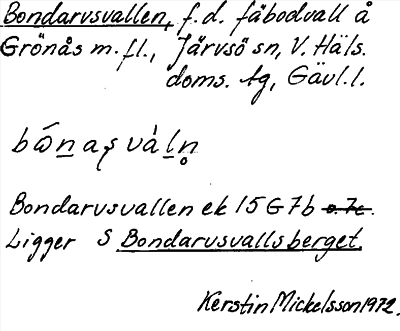 Bondarvsvallen, f.d. fäbodvall å
Grönås m.fl., Järvsö sn, V. Häls.
doms. tg, Gävl.l.
Bondarvsvallen ek 15G7b o. 7c.
Ligger S Bondarvsvallsberget.
Kerstin Mickelsson 1972.